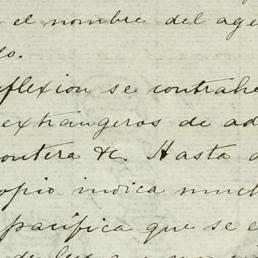 el nombre del age
o.
flexion se contrahe
extrangeros de ad
ontera &c. Hasta a
opio indica much
pacifica que se e